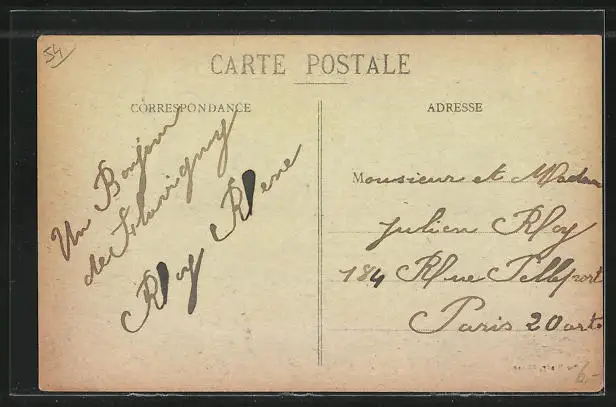 54
CARTE POSTALE
CORRESPONDANCE
Un Bonjour
de Fluvigny
Roy Rene
ADRESSE
Monsieur et Madam
Julien Roy
184 Rue Pelleport
Paris 20 arrt
6.-